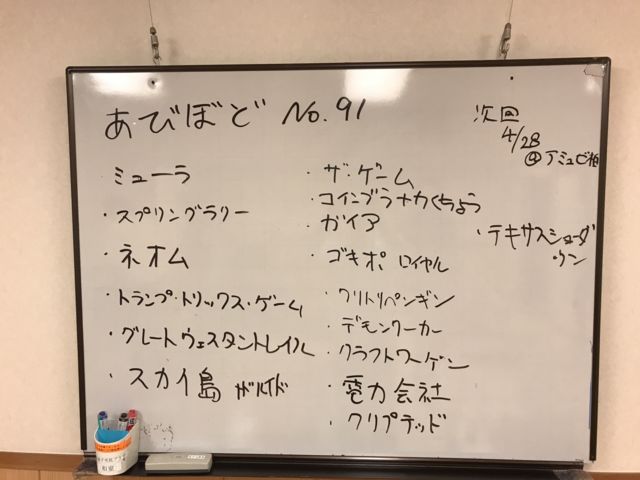 あびぼど No. 91
次回
4/28
@アミュビ柏
ミューラ
・スプリングラリー
・ネオム
・トランプ・トリックス・ゲーム
・グレートウェスタントレイル
・スカイ島 ガルイド
・ザ・ゲーム
・コインブラ ナカくちょう
・ガイア
・ゴキポ ロイヤル
・クリトリペンギン
・デモンワーカー
・クラフトワーゲン
・電力会社
・クリプテッド
・テキサスショーダ
ウン